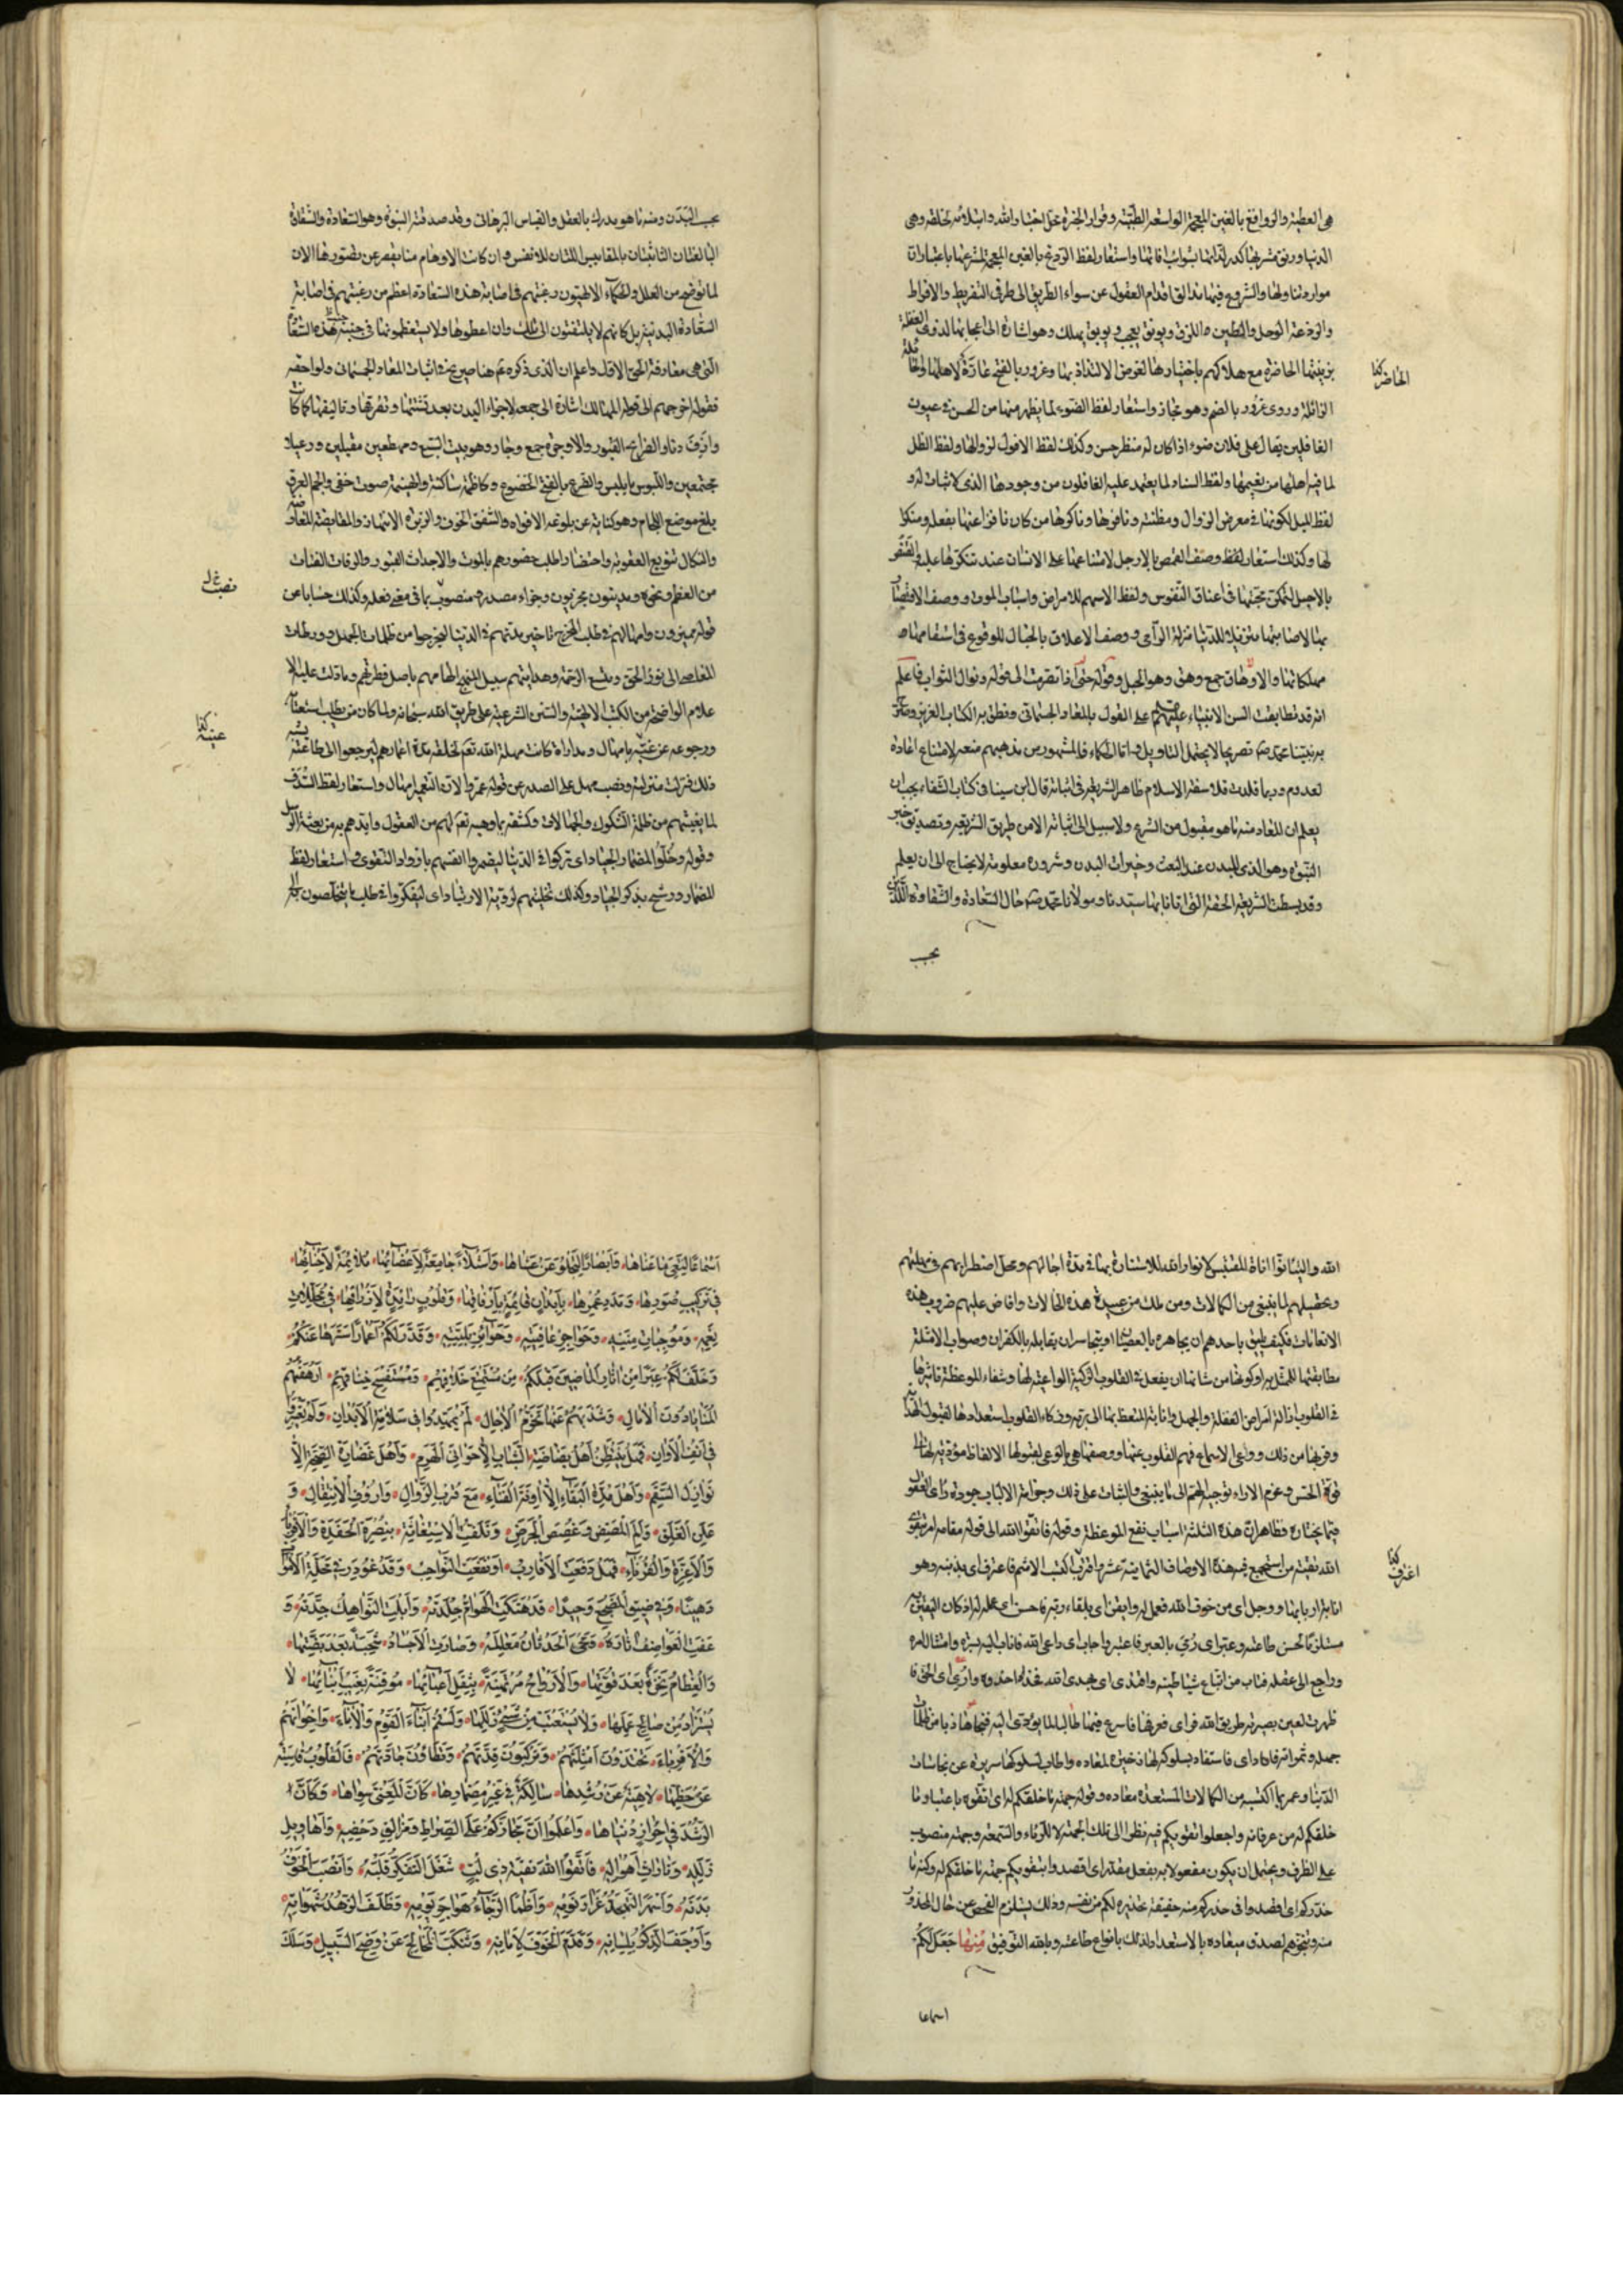 هى العطية والروافغ بالغين المعجمة الواسعة الطيّبة وقرار الخبرة محلّ اختبار الله وابتلائه لخلقه وهى
الدنيا ورنق مشربها كدر لذّاتها بشوائب افاتها واستعار لفظ الردغ بالغين المعجمة لمشرعها باعتبار ان
موارد تناولها والشروع فيها مزالق اقدام العقول عن سواء الطريق الى طرفى التفريط والافراط
والردغة الوحل والطين الزلق ويونق يعجب ويوبق يهلك وهو اشارة الى اعجابها لذوى الغفلة
بزينتها الحاضرة مع هلاكهم باختيارها لغرض الالتذاذ بها وغرور بالفتح غارّة لاهلها
الزائلة وروى غرور بالضم وهو مجاز واستعار لفظ الضوء لما يظهر منها من الحسن فى عيون
الغافلين يقال على فلان ضوء اذا كان له منظر حسن وكذلك لفظ الافول لزوالها ولفظ الظل
لما فيه اهلها من نعيمها ولفظ السناد لما يعتمد عليه الغافلون من وجودها الذى لا ثبات له و
لفظ الميل لكونها فى معرض الزوال ومظنته ونافرها وناكرها من كان نافرا عنها بفعله ومنكرا
لها وكذلك استعار لفظ وصف القمص بالارجل لامتناعها على الانسان عند تنكرها عليه والقنص
بالاحبل لتمكن محبتها فى اعناق النفوس ولفظ الاسهم للامراض واسباب الموت ووصف الاقصاد
بها لاصابتها تنزيلا للدنيا منزلة الرامى ووصف الاعلاق بالحبال للوقوع فى
مهلكاتها والاوهاق جمع وهق وهو الحبل وقوله حتى اذا تصرمت الى قوله ونوال الثواب فاعلم
انه قد تطابقت السن الانبياء عليهم على القول بالمعاد الجسمانى ونطق به الكتاب العزيز
به نبينا محمد تصريحا لا يحتمل التاويل واما الحكماء فالمشهور من مذهبهم منعه لامتناع اعادة
المعدوم وربما قلدت فلاسفة الاسلام ظاهر الشريعة فى اثباته قال ابن سينا فى كتاب الشفاء يجب ان
يعلم ان المعاد منه ما هو مقبول من الشرع ولا سبيل الى اثباته الا من طريق الشريعة وتصديق خبر
النبوة وهو الذى للبدن عند البعث وخيرات البدن وشروره معلومة لا يحتاج الى ان يعلم
وقد بسطت الشريعة الحقة التى اتانا بها سيدنا ومولانا محمد حال السعادة والشقاوة اللتين
بحسب
بحسب البدن ومنه ما هو يدرك بالعقل والقياس البرهانى وقد صدقته النبوة وهو السعادة والشقاوة
البالغتان الثابتتان بالمقاييس اللتان للانفس وان كانت الاوهام منا تقصر عن تصورها الان
لما نوضح من العلل والحكماء الالهيون رغبتهم فى اصابة هذه السعادة اعظم من رغبتهم فى اصابة
السعادة البدنية بل كانهم لا يلتفتون الى تلك وان اعطوها ولا يستعظمونها فى جنبة هذه السعادة
التى هى مقاربة الحق الاول واعلم ان الذى ذكره هنا صريح فى اثبات المعاد الجسمانى ولواحقه
فقوله اخرجهم الى قوله المهالك اشارة الى جمعه لاجزاء البدن بعد تشتتها وتفرقها وتاليفها كما كانت
وازف دنا والضرائح القبور والاوجرة جمع وجار وهو بيت السبع ومهطعين مقبلين ورعيلا
مجتمعين واللبوس ما يلبس والضرع بالفتح الخضوع وكاظمة ساكنة والهينمة صوت خفى والجم العرق
بلغ موضع اللجام وهو كناية عن بلوغه الافواه والشفق الخوف والزبرة الانتهار والمقايضة المعاوضة
والنكال تنويع العقوبة واحتضارا طلب حضورهم بالموت والاجداث القبور والرفات الفتات
من العظم ونحوه ومدينون مجزيون وجزاء مصدر منصوب بما فى معنى فعله وكذلك حسابا عن
قوله مميزون وامهالهم فى طلب المخرج تاخير مدتهم فى الدنيا ليخرجوا من ظلمات الجهل وورطات
المعاصى الى نور الحق ومتسع الرحمة وهدايتهم سبيل المنهج الهامهم باصل فطرتهم وما دلت عليه الا
علام الواضحة من الكتب الالهية والسنن الشرعية على طريق الله سبحانه ولما كان من يطلب استعتابه
ورجوعه عن غيه بامهال ومداراة كانت مهلة الله تعم لخلقه مدة اعمارهم ليرجعوا الى طاعته
ذلك فنزلت منزلته ونصب مهل على المصدر عن قوله عمروا لان التعمير امهال واستعار لفظ السدف
لما يغشيهم من ظلمة الشكوك والجهالات وكشفه بما وهبه تعم لهم من العقول وايدهم به من بعثة الرسل
وقوله وخلوا المضمار الجياد اى تركوا فى الدنيا ليضمروا انفسهم بازواد التقوى واستعار لفظ
المضمار ورشح بذكر الجياد وكذلك تخليتهم لروية الارتياد اى ليتفكروا فى طلب ما يتخلصون به الى
الله والتانوا اناة المقتبس لانوار الله للاستنارة بها فى مدة اجالهم ومحل اضطرابهم فى مهلتهم
وتحصيلهم لما ينبغى من الكمالات ومن ملك من عبيده هذه الحالات وافاض عليهم ضروب هذه
الانعامات فكيف يليق باحدهم ان يجاهره بالعصيان او يتجاسر ان يقابله بالكفران وصواب الامثلة
مطابقتها للممثل به او كونها من شانها ان يفعل فى القلوب الزكية الواعية لها وشفاء الموعظة تاثيرها
فى القلوب ازالة امراض الغفلة والجهل وانابة المتعظ بها الى ربه وزكاء القلوب استعدادها لقبول الهداية
وقربها من ذلك ووعى الاسماع فهم القلوب عنها ووصفها هى بالوعى لقبولها الالفاظ مؤدية لها الى
قوة الحس وعزم الاراء توجيه الهمم الى ما ينبغى والثبات على ذلك وحزامة الالباب جودة راى العقول
فيما يختاره وظاهر ان هذه الثلثة اسباب نفع الموعظة وقوله فاتقوا الله الى قوله مقامه امر بتقوى
الله تقية من استجمع هذه الاوصاف الثمانية عشر واقترف اكتسب الاثم فاعترف اى بذنبه وهو
انابة الى ربه ووجل اى من خوف الله فعمل له وايقن اى بلقاء ربه فاحسن اى عمله له اذ كان اليقين
مستلزما لحسن طاعته وعبّر اى رمى بالعبر فاعتبر واجاب اى داعى الله فاناب اليه بسره وامتثال امره
وراجع الى عقله فتاب من اتباع شياطينه واقتدى اى بهدى الله فحذا حذوه وارى اى الحق فراى
ظهرت لعين بصيرته طريق الله فراى فعرفها فاسرع فيها طالبا لما يؤدى اليه فنجا هاربا من ظلمات
جهله وثمراته فافاد اى فاستفاد بسلوكه لها ذخيرة لمعاده واطاب بسلوكها سريرة عن نجاسات
الدنيا وعمر بما اكتسبه من الكمالات المستعدة معاده وقوله جهة ما خلقكم له اى اتقوه باعتبار ما
خلقكم له من عرفانه واجعلوا تقويكم فيه نظرا الى تلك الجهة لا للرئاء والسمعة وجهة منصوب
على الظرف ويحتمل ان يكون مفعولا به بفعل مقدر اى اقصدوا بتقويكم جهة ما خلقكم له وكنه ما
حذركم اى اقصدوا فى حذركم منه حقيقة تحذيره لكم من نفسه وذلك يستلزم الفحص عن حال المحذور
منه وتنجزهم لصدق ميعاده بالاستعداد لذلك بانواع طاعته وبالله التوفيق منها جَعَلَ لَكُمْ
اسماعا
اَسْماعًا لِتَعِىَ ما عَناها وَاَبْصارًا لِتَجْلُوَ عَنْ عَشاها وَاَشْلاءً جامِعَةً لِاَعْضائِها مُلائِمَةً لِاَحْنائِها
فى تَرْكيبِ صُوَرِها وَمُدَدِ عُمُرِها بِاَبْدانٍ قائِمَةٍ بِاَرْفاقِها وَقُلُوبٍ رائِدَةٍ لِاَرْزاقِها فى مُجَلِّلاتِ
نِعَمِهِ وَمُوجِباتِ مِنَنِهِ وَحَواجِزِ عافِيَتِهِ وَحَوائِزِ بَلِيَّتِهِ وَقَدَّرَ لَكُمْ اَعْمارًا سَتَرَها عَنْكُمْ
وَخَلَّفَ لَكُمْ عِبَرًا مِنْ اثارِ الْماضينَ قَبْلَكُمْ مِنْ مُسْتَمْتَعِ خَلاقِهِمْ وَمُسْتَفْسَحِ خِناقِهِمْ اَرْهَقَتْهُمُ
الْمَنايا دُونَ الْامالِ وَشَذَّبَهُمْ عَنْها تَخَرُّمُ الْاجالِ لَمْ يَمْهَدُوا فى سَلامَةِ الْاَبْدانِ وَلَمْ يَعْتَبِرُوا
فى اُنُفِ الْاَوانِ فَهَلْ يَنْتَظِرُ اَهْلُ بَضاضَةِ الشَّبابِ اِلّا حَوانِىَ الْهَرَمِ وَاَهْلُ غَضارَةِ الصِّحَّةِ اِلّا
نَوازِلَ السَّقَمِ وَاَهْلُ مُدَّةِ الْبَقاءِ اِلّا اوِنَةَ الْفَناءِ مَعَ قُرْبِ الزَّوالِ وَاُزُوفِ الْاِنْتِقالِ وَ
عَلَزِ الْقَلَقِ وَاَلَمِ الْمَضَضِ وَغُصَصِ الْجَرَضِ وَتَلَفُّتِ الْاِسْتِغاثَةِ بِنُصْرَةِ الْحَفَدَةِ وَالْاَقْرِباءِ
وَالْاَعِزَّةِ وَالْقُرَناءِ فَهَلْ دَفَعَتِ الْاَقارِبُ اَوْ نَفَعَتِ النَّواحِبُ وَقَدْ غُودِرَ فى مَحَلَّةِ الْاَمْواتِ
رَهينًا وَفى ضيقِ الْمَضْجَعِ وَحيدًا قَدْ هَتَكَتِ الْهَوامُّ جِلْدَتَهُ وَاَبْلَتِ النَّواهِكُ جِدَّتَهُ وَ
عَفَتِ الْعَواصِفُ اثارَهُ وَمَحَى الْحَدَثانُ مَعالِمَهُ وَصارَتِ الْاَجْسادُ شَحِبَةً بَعْدَ بَضَّتِها
وَالْعِظامُ نَخِرَةً بَعْدَ قُوَّتِها وَالْاَرْواحُ مُرْتَهَنَةً بِثِقَلِ اَعْبائِها مُوقِنَةً بِغَيْبِ اَنْبائِها لا
تُسْتَزادُ مِنْ صالِحِ عَمَلِها وَلا تُسْتَعْتَبُ مِنْ سَيِّئِ زَلَلِها اَوَلَسْتُمْ اَبْناءَ الْقَوْمِ وَالْاباءَ وَاِخْوانَهُمْ
وَالْاَقْرِباءَ تَحْتَذُونَ اَمْثِلَتَهُمْ وَتَرْكَبُونَ قِدَّتَهُمْ وَتَطَاُونَ جادَّتَهُمْ فَالْقُلُوبُ قاسِيَةٌ
عَنْ حَظِّها لاهِيَةٌ عَنْ رُشْدِها سالِكَةٌ فى غَيْرِ مِضْمارِها كَاَنَّ الْمَعْنِىَّ سِواها وَكَاَنَّ
الرُّشْدَ فى اِحْرازِ دُنْياها وَاعْلَمُوا اَنَّ مَجازَكُمْ عَلَى الصِّراطِ وَمَزالِقِ دَحْضِهِ وَاَهاويلِ
زَلَلِهِ وَتاراتِ اَهْوالِهِ فَاتَّقُوا اللهَ تَقِيَّةَ ذى لُبٍّ شَغَلَ التَّفَكُّرُ قَلْبَهُ وَاَنْصَبَ الْخَوْفُ
بَدَنَهُ وَاَسْهَرَ التَّهَجُّدُ غِرارَ نَوْمِهِ وَاَظْمَاَ الرَّجاءُ هَواجِرَ يَوْمِهِ وَظَلَفَ الزُّهْدُ شَهَواتِهِ
وَاَوْجَفَ الذِّكْرُ بِلِسانِهِ وَقَدَّمَ الْخَوْفَ لِاَمانِهِ وَتَنَكَّبَ الْمَخالِجَ عَنْ وَضَحِ السَّبيلِ وَسَلَكَ